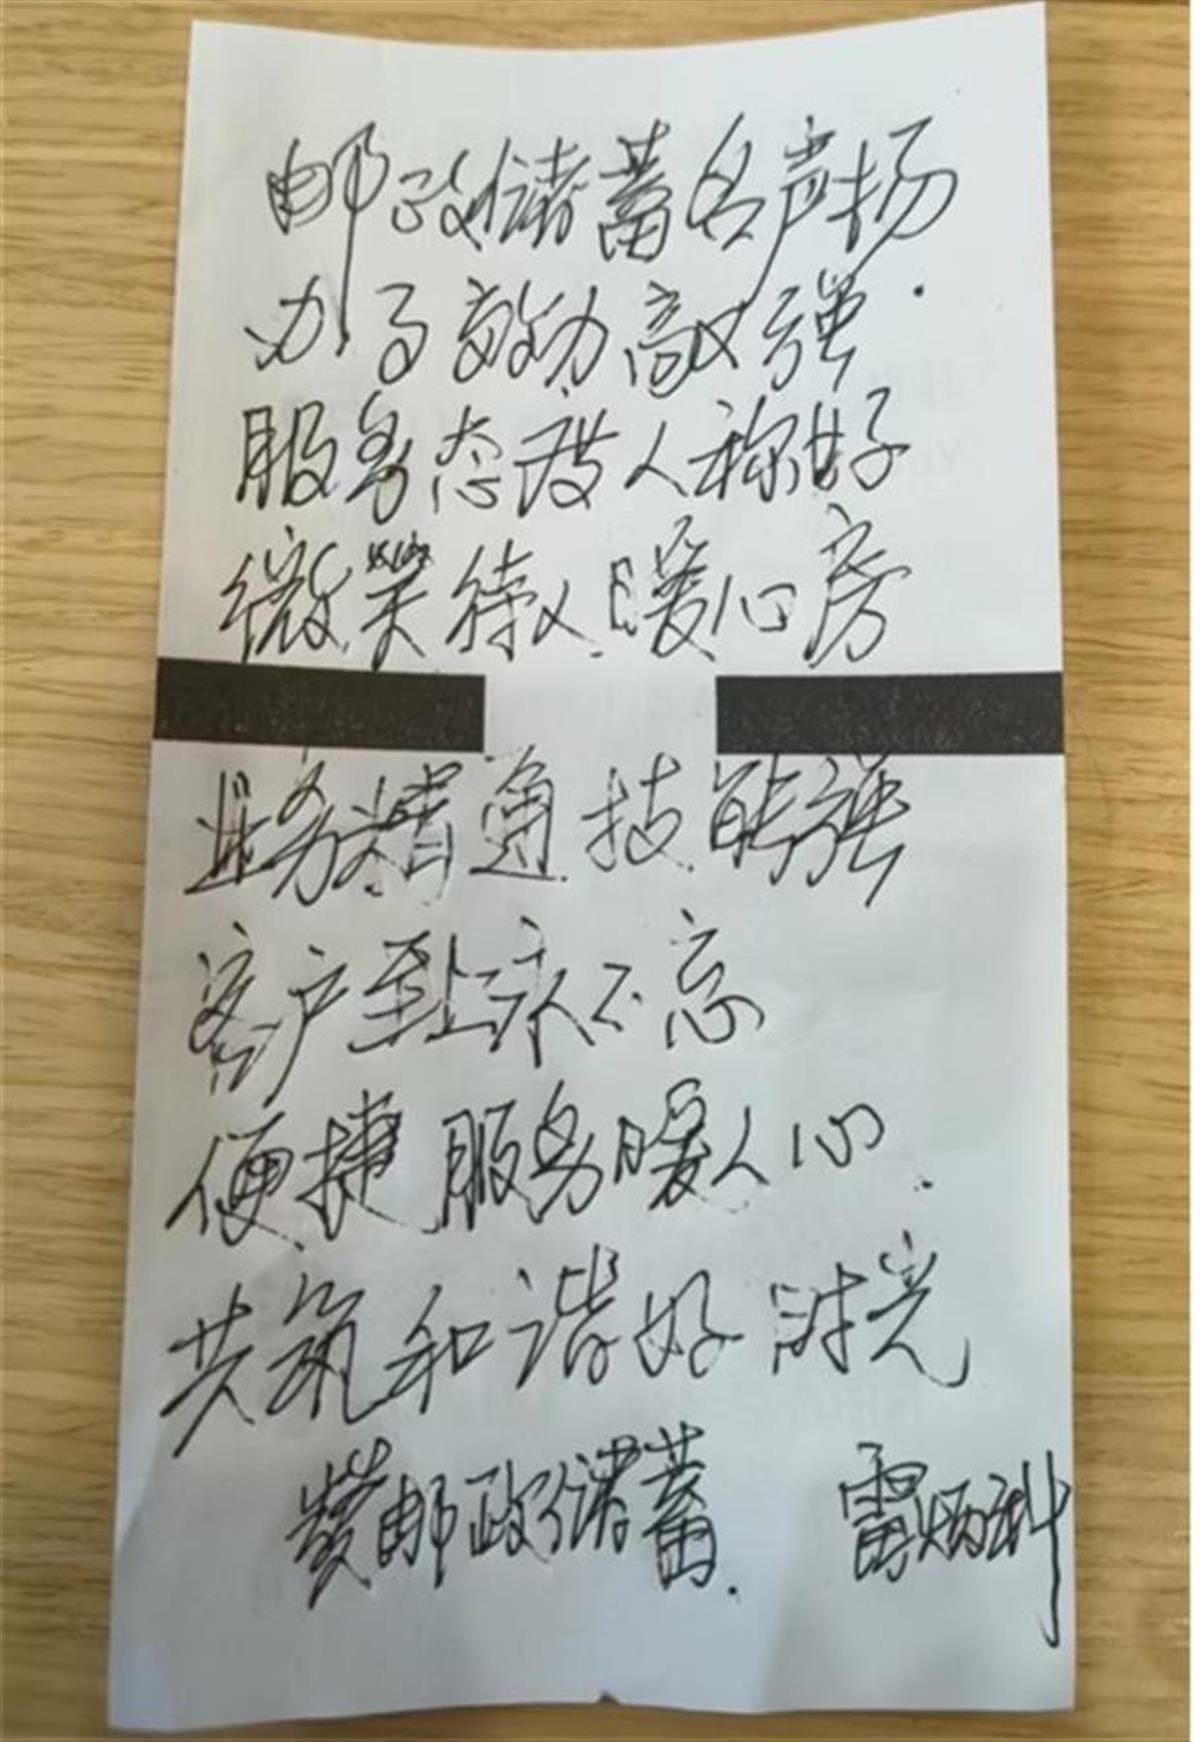 邮政储蓄名声扬.
办事效力高又强
服务态度人称好
微笑待人暖心房
业务精通技能强
客户至上永不忘
便捷服务暖人心.
共筑和谐好时光
赞邮政储蓄. 雷炳科